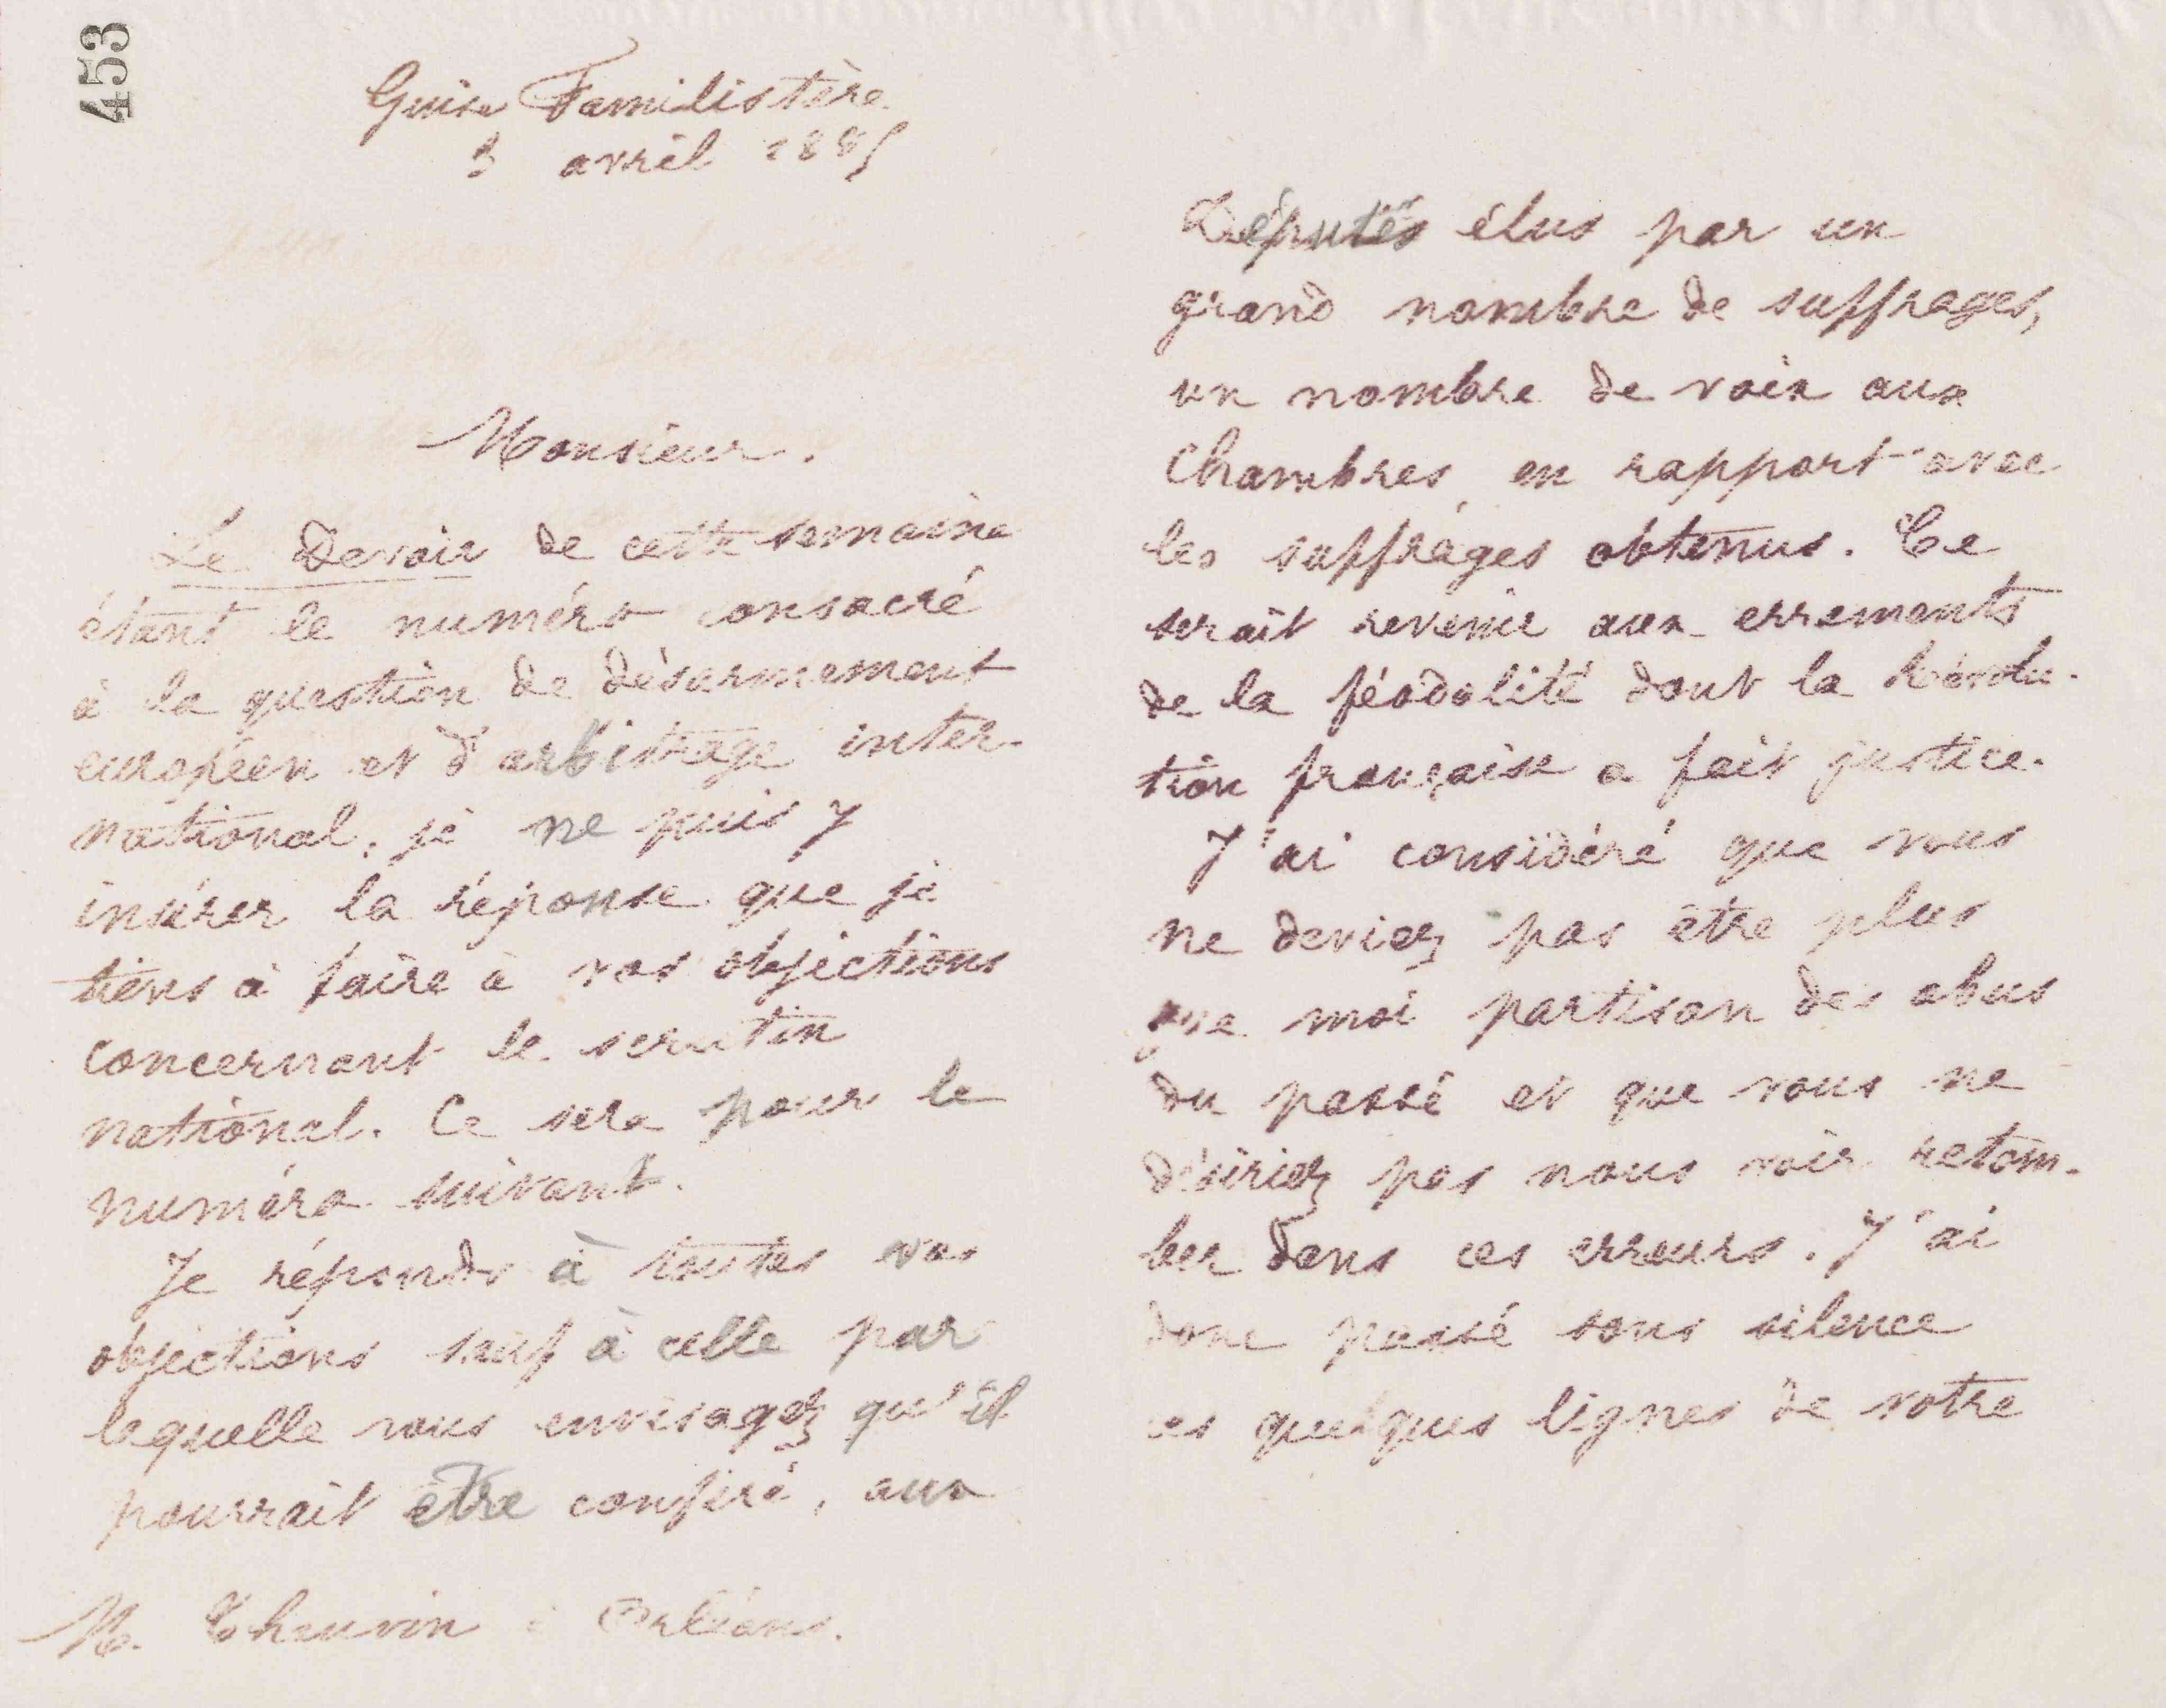 453
Guise Familistère
3 avril 1885
Monsieur.
Le Devoir de cette semaine
étant le numéro consacré
à la question de désarmement
européen et d'arbitrage inter-
national, je ne puis y
insérer la réponse que je
tiens à faire à vos objections
concernant le scrutin
national. Ce sera pour le
numéro suivant.
Je réponds à toutes vos
objections sauf à celle par
laquelle vous envisagez qu'il
pourrait être conféré, aux
M. Chauvin à Orléans.
Députés élus par un
grand nombre de suffrages,
un nombre de voix aux
Chambres en rapport avec
les suffrages obtenus. Ce
serait revenir aux errements
de la féodalité dont la Révolu-
tion française a fait justice.
J'ai considéré que vous
ne deviez pas être plus
que moi partisan des abus
du passé et que vous ne
désiriez pas nous voir retom-
ber dans ces erreurs. J'ai
donc passé sous silence
ces quelques lignes de votre